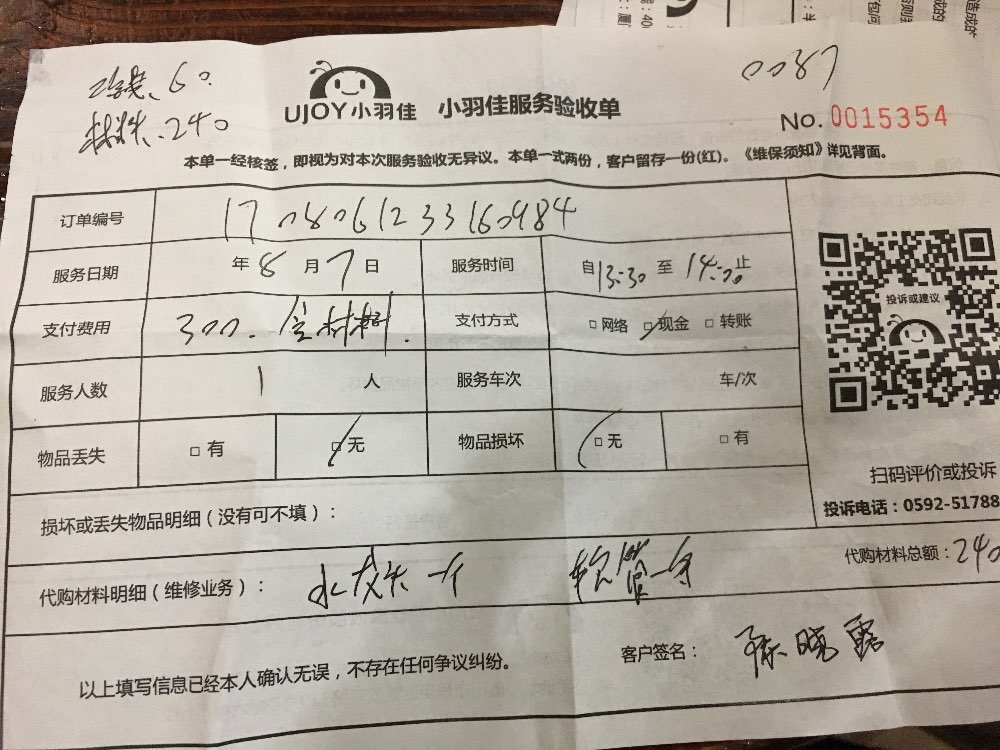 0087
工钱、60
材料、240
UJOY小羽佳 小羽佳服务验收单
No. 0015354
本单一经核签，即视为对本次服务验收无异议。本单一式两份，客户留存一份(红)。《维保须知》详见背面。
订单编号 1708061233160984
服务日期 年8月7日 服务时间 自13:30至14:20止
支付费用 300. 含材料. 支付方式 □网络 □现金 □转账
服务人数 1 人 服务车次 车/次
物品丢失 □有 □无 物品损坏 □无 □有
投诉或建议
扫码评价或投诉
投诉电话：0592-51788
损坏或丢失物品明细（没有可不填）：
代购材料明细（维修业务）： 水龙头一个 软管一条 代购材料总额：240
以上填写信息已经本人确认无误，不存在任何争议纠纷。 客户签名： 晓露